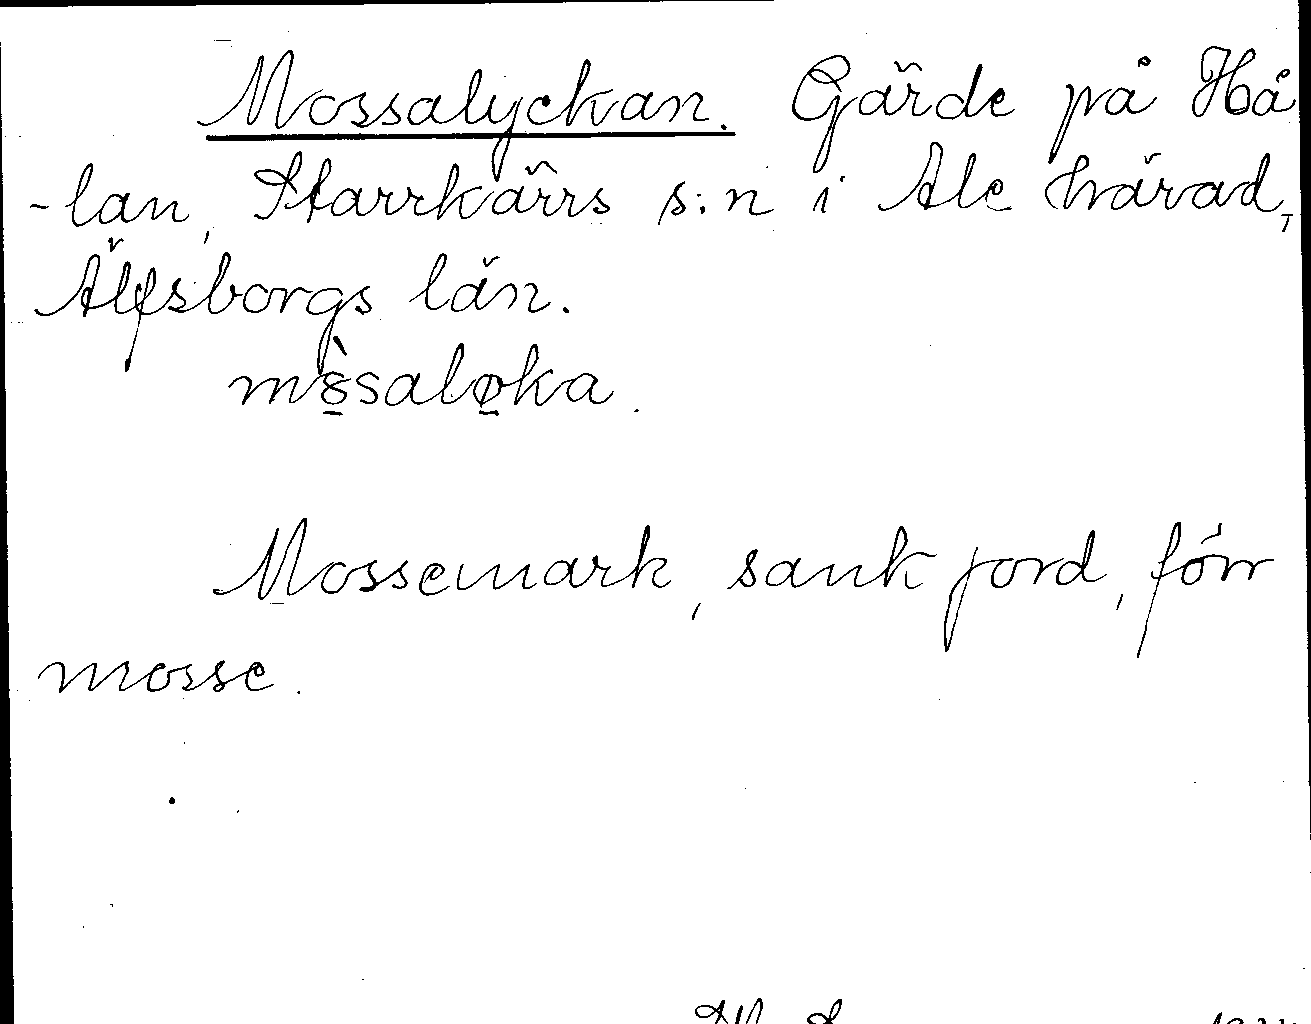 Mossalyckan. Gärde på Hå
-lan, Starrkärrs s:n i Ale härad,
Älfsborgs län.
mòsaløka.
Mossemark, sank jord, förr
mosse.